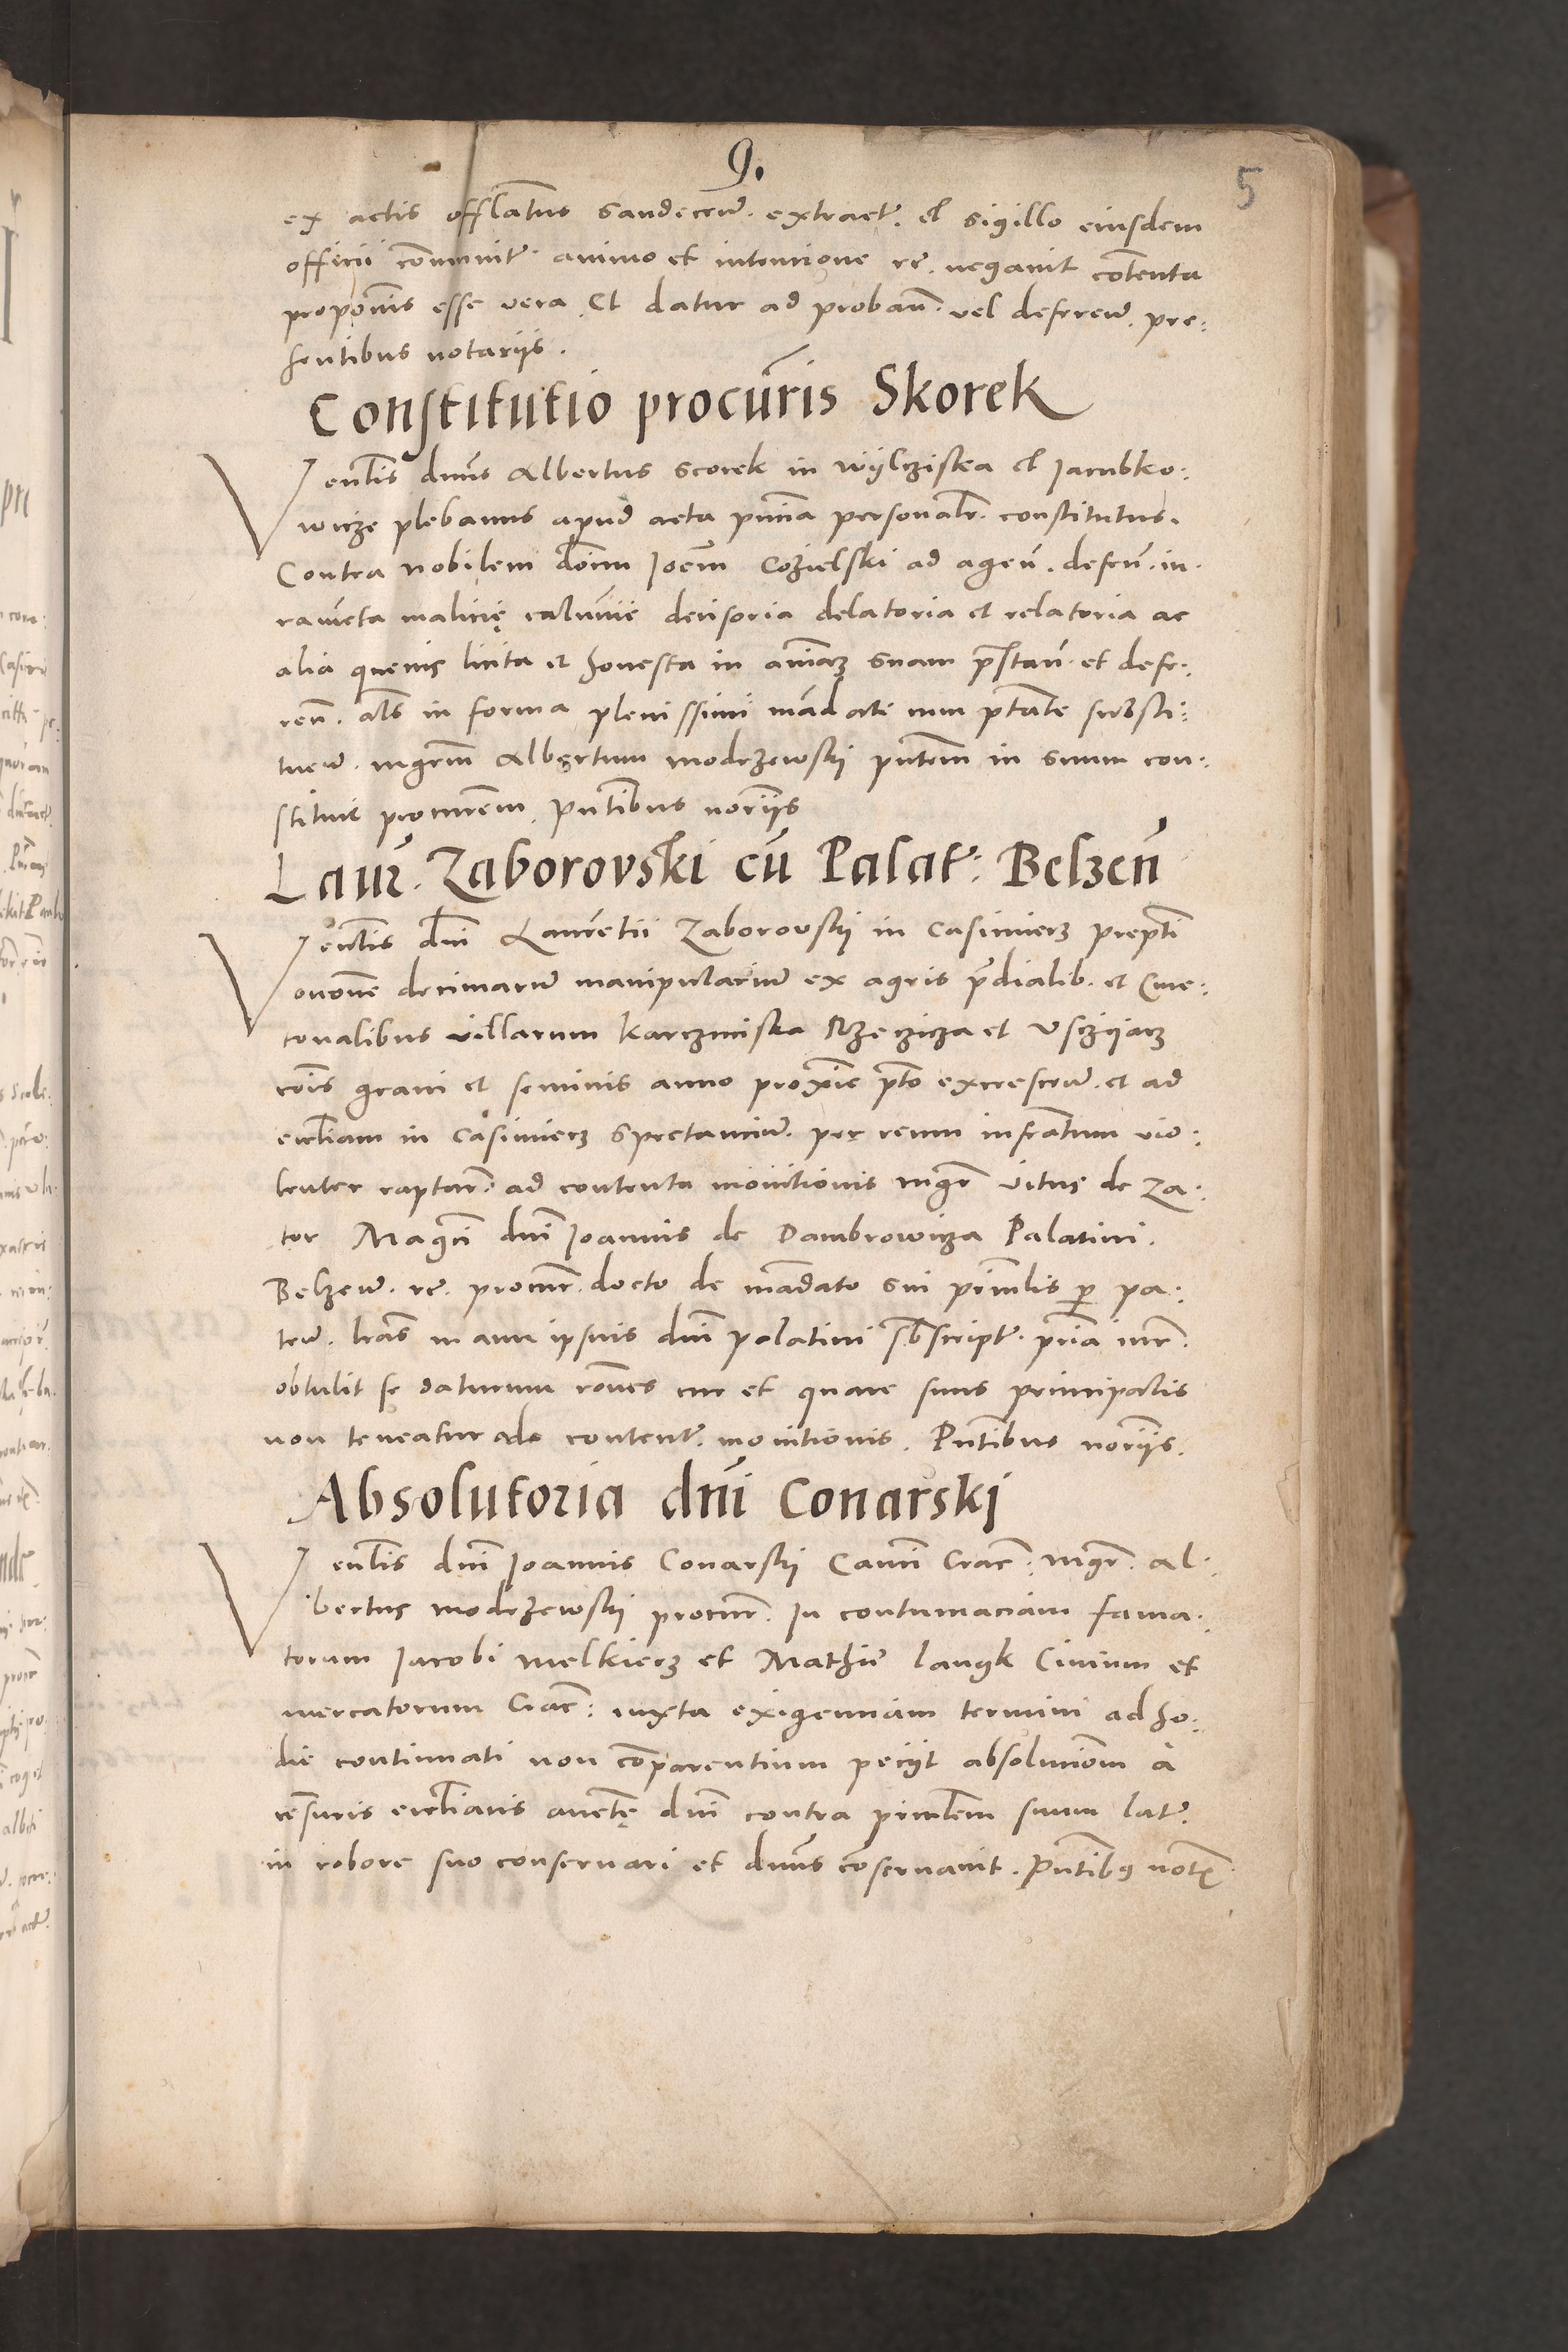 9.
5
ex actis offlatus Sandeceñ. extract. et sigillo eiusdem
officii com̄unit. animo et intentione re. negauit cōtenta
propōnis esse vera Et datur ad proban̄. vel deferen̄. pre:
sentibus notariis.
Constitutio procur̄is Skorek
Venl̄is dn̄us Albertus Scorek in Wylcziska et Iacubko:
wicze plebanus apud acta pn̄cia personalr̄. constitutus.
Contra nobilem dōim Ioēm Cozielski ad agen̄. defen̄. iu.
ramēta malicię calum̄ie decisoria delatoria et relatoria ac
alia queuis licita et honesta in aīam suam pr̄stan̄. et defe:
ren̄. als̄ in forma plenissimi mādati cum ptāte substi:
tuen̄. mgr̄m Albertum Modrzewski pn̄tem in suum con:
stituit procurem̄. Pn̄tibus nor̄iis
Laur̄. Zaborovski cū Palat: Belzen̄
Venl̄is dn̄i Laurētii Zaborovski in Casimierz prepti
occōne decimarum manipularium ex agris pr̄dialib. et Cme:
tonalibus villarum Karczmiska Rzeczicza et Vsczyąz
cōis grani et seminis anno proxīe pr̄to excrescen̄. et ad
eccl̄iam in Casimierz spectancium. per reum infrāctum vio:
lenter raptar̄. ad contenta monitionis mgr̄ Vitus de Za:
tor Magci dn̄i Ioannis de Dambrowicza Palatini.
Belzen̄. re. procur̄. docto de mādato sui prin̄lis p pa:
ten̄. lr̄as manu ipsius dn̄i palatini sb̄script. prīa iur̄.
obtulit se daturum rōnes cur et quare suus principalis
non teneatur ad contenta monitionis. Pn̄tibus nor̄iis.
Absolutoria dn̄i Conarski
Venl̄is dn̄i Ioannis Conarski Can̄ci Crac̄: mgr̄. Al:
bertus Modrzewski procur̄. In contumaciam fama:
torum Iacobi Melkierz et Mathie Langk Ciuium et
mercatorum Crac̄: iuxta exigenciam termini ad ho:
die continuati non cōparentium peciit absolucion̄m à
cēsuris eccl̄iacis auctę dn̄i contra prin̄lem suum lat.
in robore suo conseruari et dn̄us cōseruauit. Pn̄tibus not.